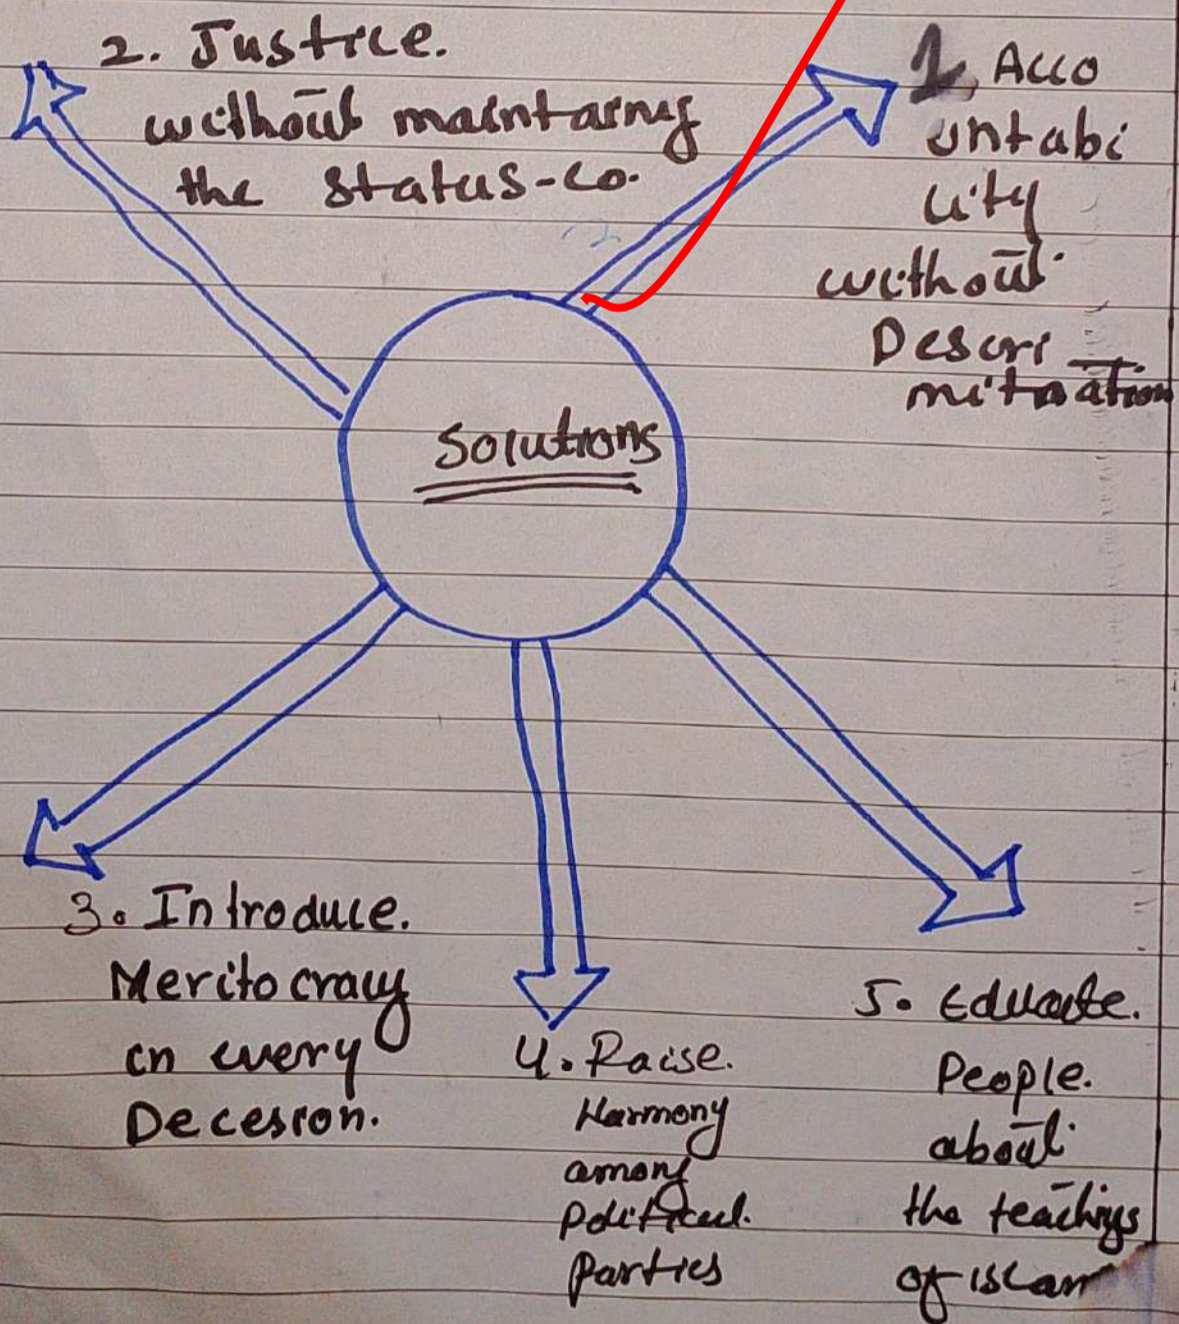 2. Justice.
without maintaining
the status-co.
1. Acco
untabi
lity
without
Descri
mitnation
Solutions
3. Introduce.
Meritocracy
in every
Decesion.
4. Raise.
Harmony
among
Political.
Parties
5. Educate.
People.
about
the teachings
of islam